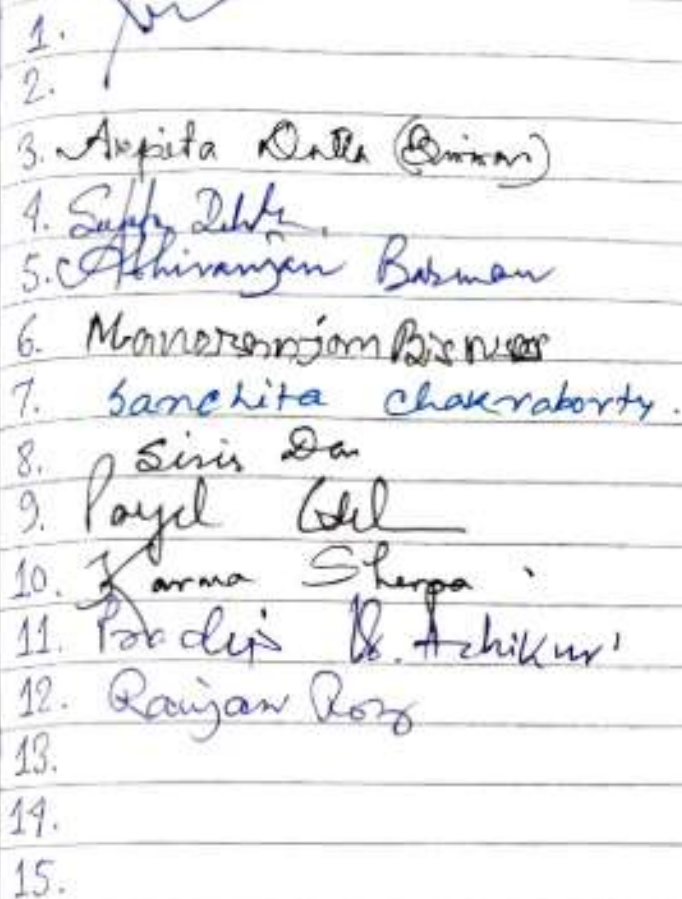 1.
2.
3. Arpita Datta
4.
5. Abhiranjan Barman
6. Manoranjan Biswas
7. Sanchita Chakraborty.
8. Sisir Das
9. Payel
10. Karma Sherpa
11. Pradip Kr. Adhikari
12. Ranjan Roy
13.
14.
15.